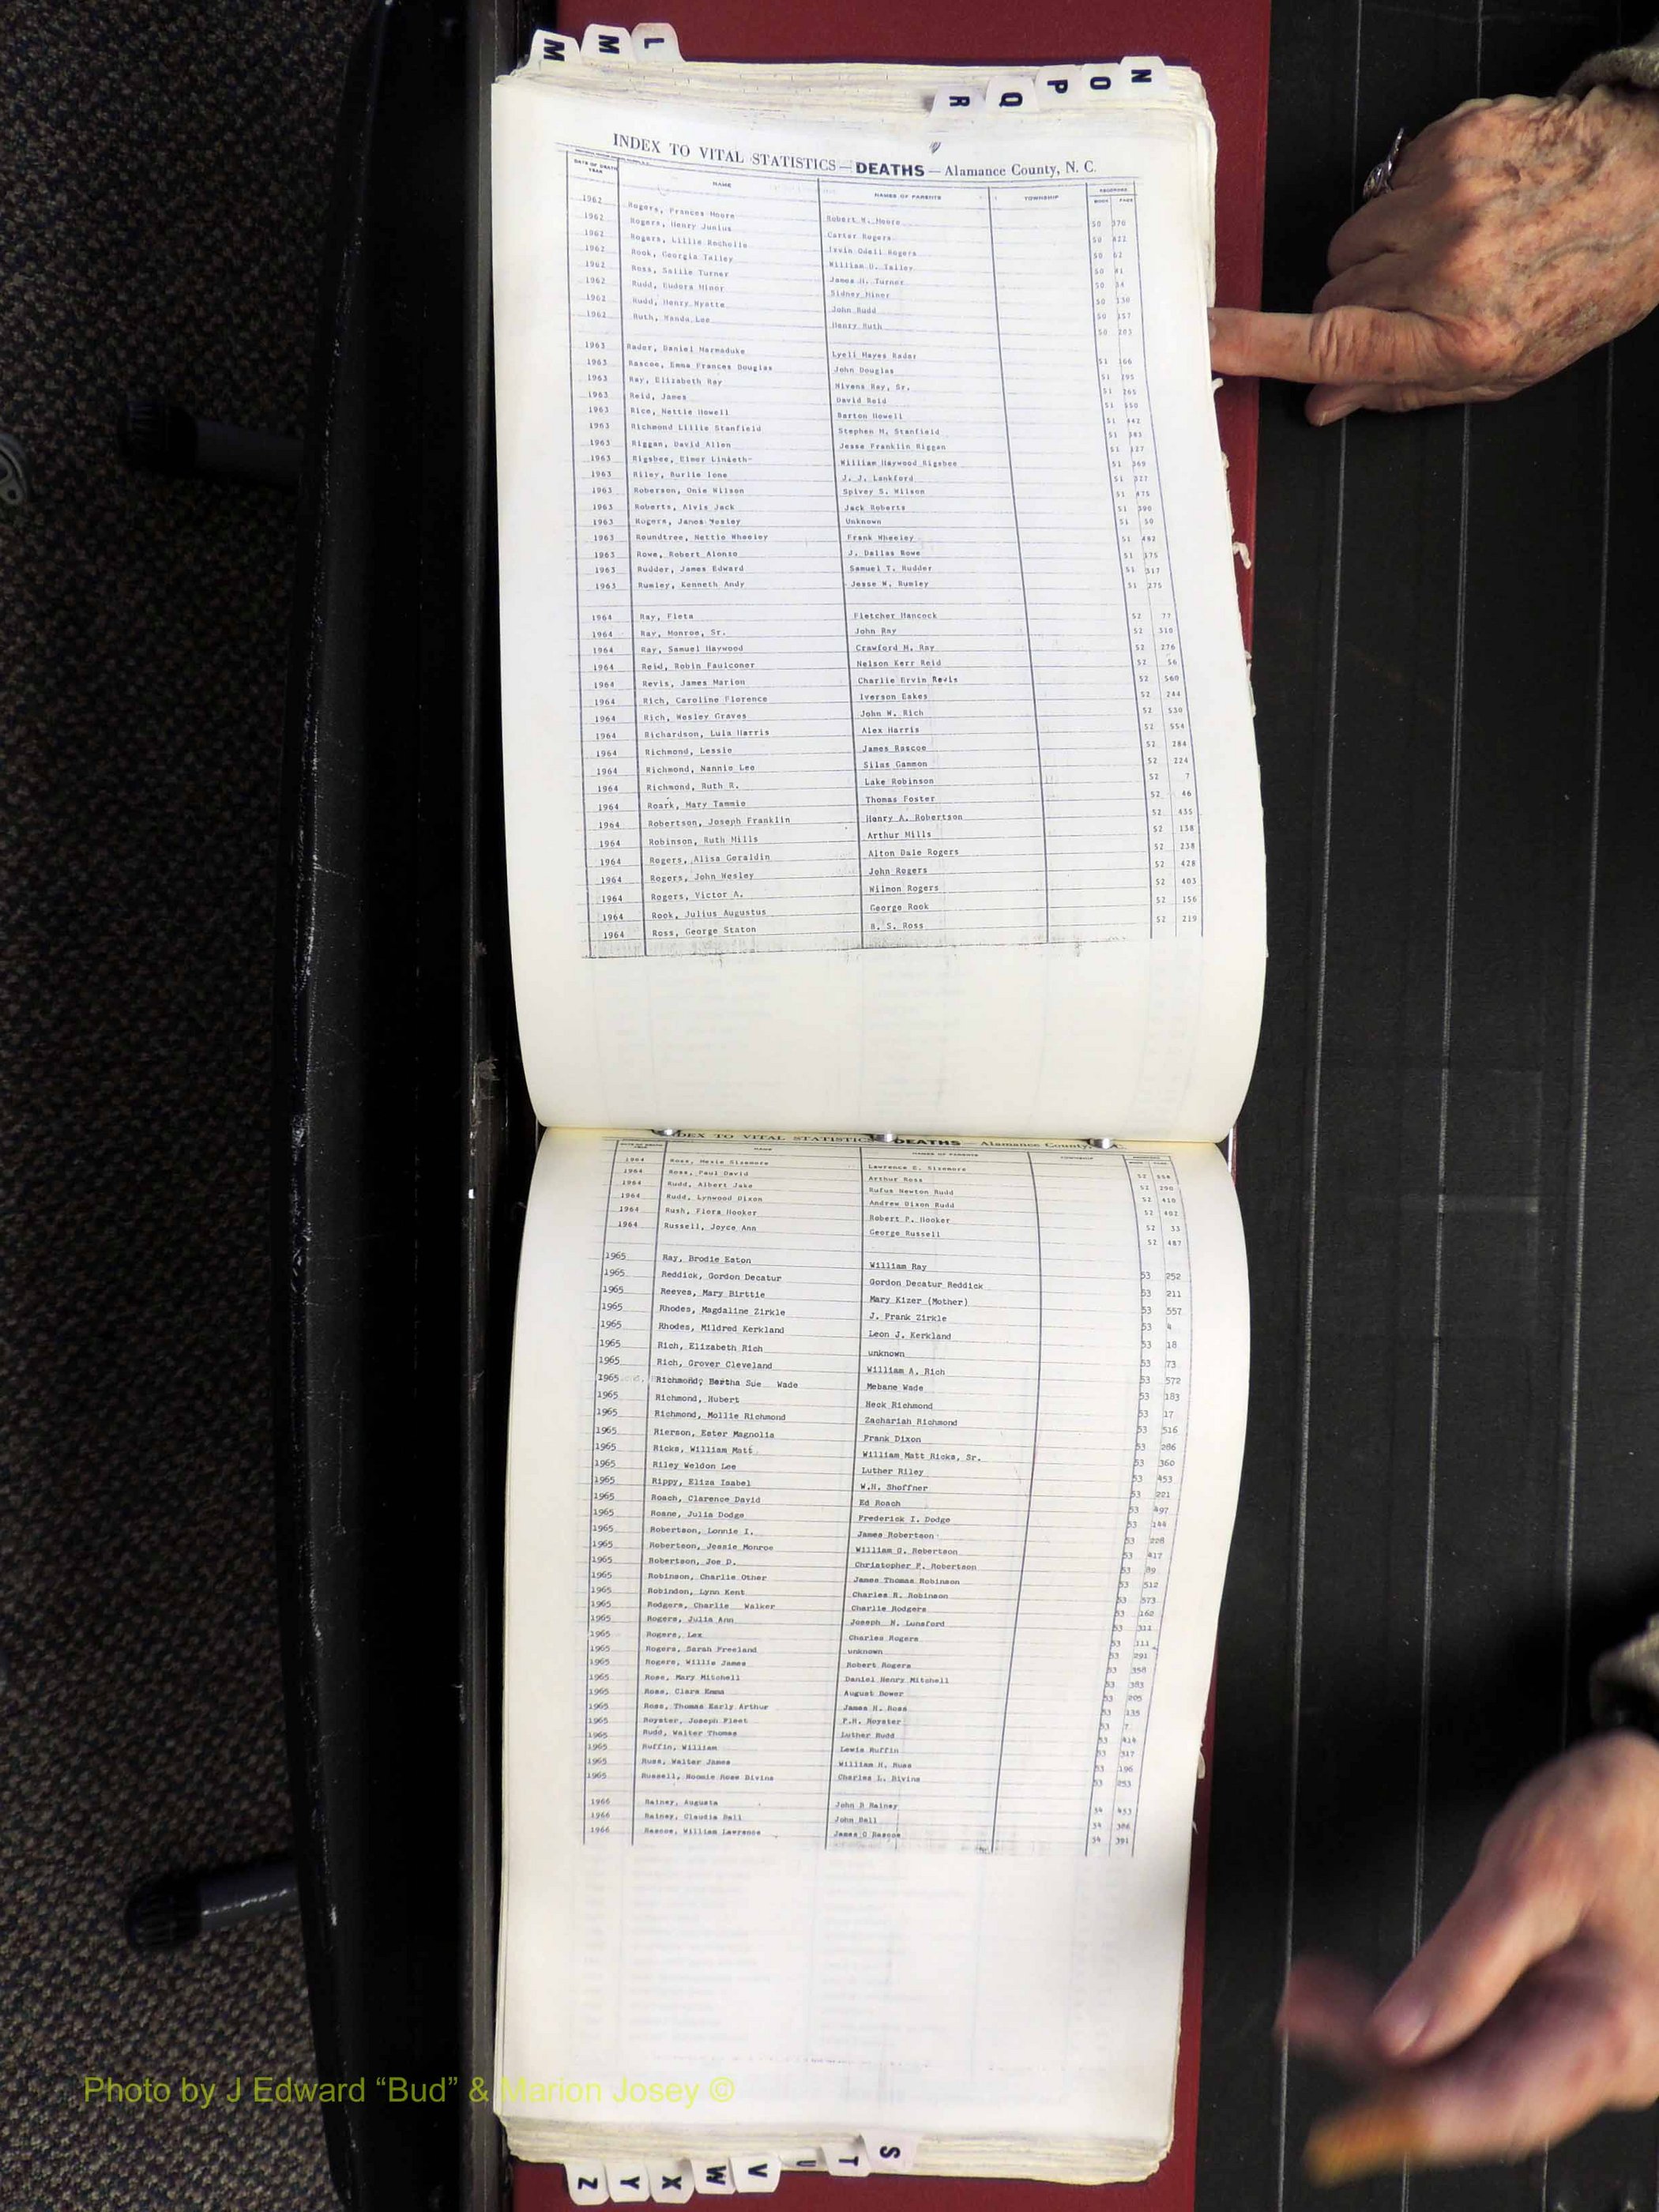 M M L
R Q P O N
INDEX TO VITAL STATISTICS — DEATHS — Alamance County, N. C.
DATE OF DEATH YEAR NAME NAMES OF PARENTS TOWNSHIP RECORDED BOOK PAGE
1962 Rogers, Frances Moore Robert W. Moore 50 370
1962 Rogers, Henry Junius Carter Rogers 50 422
1962 Rogers, Lillie Rochelle Irvin Odell Rogers 50 62
1962 Rook, Georgia Talley William D. Talley 50 41
1962 Ross, Sallie Turner James H. Turner 50 54
1962 Rudd, Eudora Minor Sidney Minor 50 130
1962 Rudd, Henry Hyatte John Rudd 50 357
1962 Ruth, Wanda Lee Henry Ruth 50 203
1963 Rader, Daniel Marmaduke Lyell Hayes Rader 51 166
1963 Rascoe, Emma Frances Douglas John Douglas 51 195
1963 Ray, Elizabeth Ray Nivens Ray, Sr. 51 265
1963 Reid, James David Reid 51 550
1963 Rice, Nettie Howell Barton Howell 51 442
1963 Richmond Lillie Stanfield Stephen H. Stanfield 51 383
1963 Riggan, David Allen Jesse Franklin Riggan 51 127
1963 Rigsbee, Elmer Linieth- William Haywood Rigsbee 51 369
1963 Riley, Burlie Ione J. J. Lankford 51 327
1963 Roberson, Onie Wilson Spivey S. Wilson 51 475
1963 Roberts, Alvis Jack Jack Roberts 51 390
1963 Rogers, James Wesley Unknown 51 50
1963 Roundtree, Nettie Wheeley Frank Wheeley 51 482
1963 Rowe, Robert Alonzo J. Dallas Rowe 51 175
1963 Rudder, James Edward Samuel T. Rudder 51 317
1963 Rumley, Kenneth Andy Jesse W. Rumley 51 275
1964 Ray, Fleta Fletcher Hancock 52 77
1964 Ray, Monroe, Sr. John Ray 52 310
1964 Ray, Samuel Haywood Crawford M. Ray 52 276
1964 Reid, Robin Faulconer Nelson Kerr Reid 52 56
1964 Revis, James Marion Charlie Ervin Revis 52 560
1964 Rich, Caroline Florence Iverson Eakes 52 244
1964 Rich, Wesley Graves John W. Rich 52 530
1964 Richardson, Lula Harris Alex Harris 52 554
1964 Richmond, Lessie James Rascoe 52 284
1964 Richmond, Nannie Lee Silas Gammon 52 224
1964 Richmond, Ruth R. Lake Robinson 52 7
1964 Roark, Mary Tammie Thomas Foster 52 46
1964 Robertson, Joseph Franklin Henry A. Robertson 52 435
1964 Robinson, Ruth Mills Arthur Mills 52 138
1964 Rogers, Alisa Geraldin Alton Dale Rogers 52 238
1964 Rogers, John Wesley John Rogers 52 428
1964 Rogers, Victor A. Wilmon Rogers 52 403
1964 Rook, Julius Augustus George Rook 52 156
1964 Ross, George Staton B. S. Ross 52 219
INDEX TO VITAL STATISTICS DEATHS — Alamance County,
DATE OF DEATH NAME NAMES OF PARENTS TOWNSHIP
1964 Ross, Hexie Sizemore Lawrence E. Sizemore 52
1964 Ross, Paul David Arthur Ross 52 290
1964 Rudd, Albert Jake Rufus Newton Rudd 52 410
1964 Rudd, Lynwood Dixon Andrew Dixon Rudd 52 402
1964 Rush, Flora Hooker Robert P. Hooker 52 33
1964 Russell, Joyce Ann George Russell 52 487
1965 Ray, Brodie Eaton William Ray 53 252
1965 Reddick, Gordon Decatur Gordon Decatur Reddick 53 211
1965 Reeves, Mary Birttie Mary Kizer (Mother) 53 557
1965 Rhodes, Magdaline Zirkle J. Frank Zirkle 53 4
1965 Rhodes, Mildred Kerkland Leon J. Kerkland 53 18
1965 Rich, Elizabeth Rich unknown 53 73
1965 Rich, Grover Cleveland William A. Rich 53 572
1965 Richmond, Bertha Sue Wade Mebane Wade 53 183
1965 Richmond, Hubert Heck Richmond 53 17
1965 Richmond, Mollie Richmond Zachariah Richmond 53 516
1965 Rierson, Ester Magnolia Frank Dixon 53 286
1965 Ricks, William Matt William Matt Ricks, Sr. 53 360
1965 Riley Weldon Lee Luther Riley 53 453
1965 Rippy, Eliza Isabel W.H. Shoffner 53 221
1965 Roach, Clarence David Ed Roach 53 497
1965 Roane, Julia Dodge Frederick I. Dodge 53 144
1965 Robertson, Lonnie I. James Robertson 53 228
1965 Robertson, Jessie Monroe William G. Robertson 53 417
1965 Robertson, Joe D. Christopher F. Robertson 53 89
1965 Robinson, Charlie Other James Thomas Robinson 53 512
1965 Robindon, Lynn Kent Charles R. Robinson 53 573
1965 Rodgers, Charlie Walker Charlie Rodgers 53 162
1965 Rogers, Julia Ann Joseph N. Lunsford 53 311
1965 Rogers, Lex Charles Rogers 53 111
1965 Rogers, Sarah Freeland unknown 53 291
1965 Rogers, Willie James Robert Rogers 53 358
1965 Rose, Mary Mitchell Daniel Henry Mitchell 53 383
1965 Ross, Clara Emma August Bower 53 205
1965 Ross, Thomas Early Arthur James H. Ross 53 135
1965 Royster, Joseph Fleet F.H. Royster 53 7
1965 Rudd, Walter Thomas Luther Rudd 53 414
1965 Ruffin, William Lewis Ruffin 53 317
1965 Russ, Walter James William H. Russ 53 196
1965 Russell, Noomie Rose Bivins Charles L. Bivins 53 253
1966 Rainey, Augusta John B Rainey 54 453
1966 Rainey, Claudia Ball John Ball 54 386
1966 Rascoe, William Lawrence James G Rascoe 54 391
Photo by J Edward “Bud” & Marion Josey ©
Z Y X W V U T S